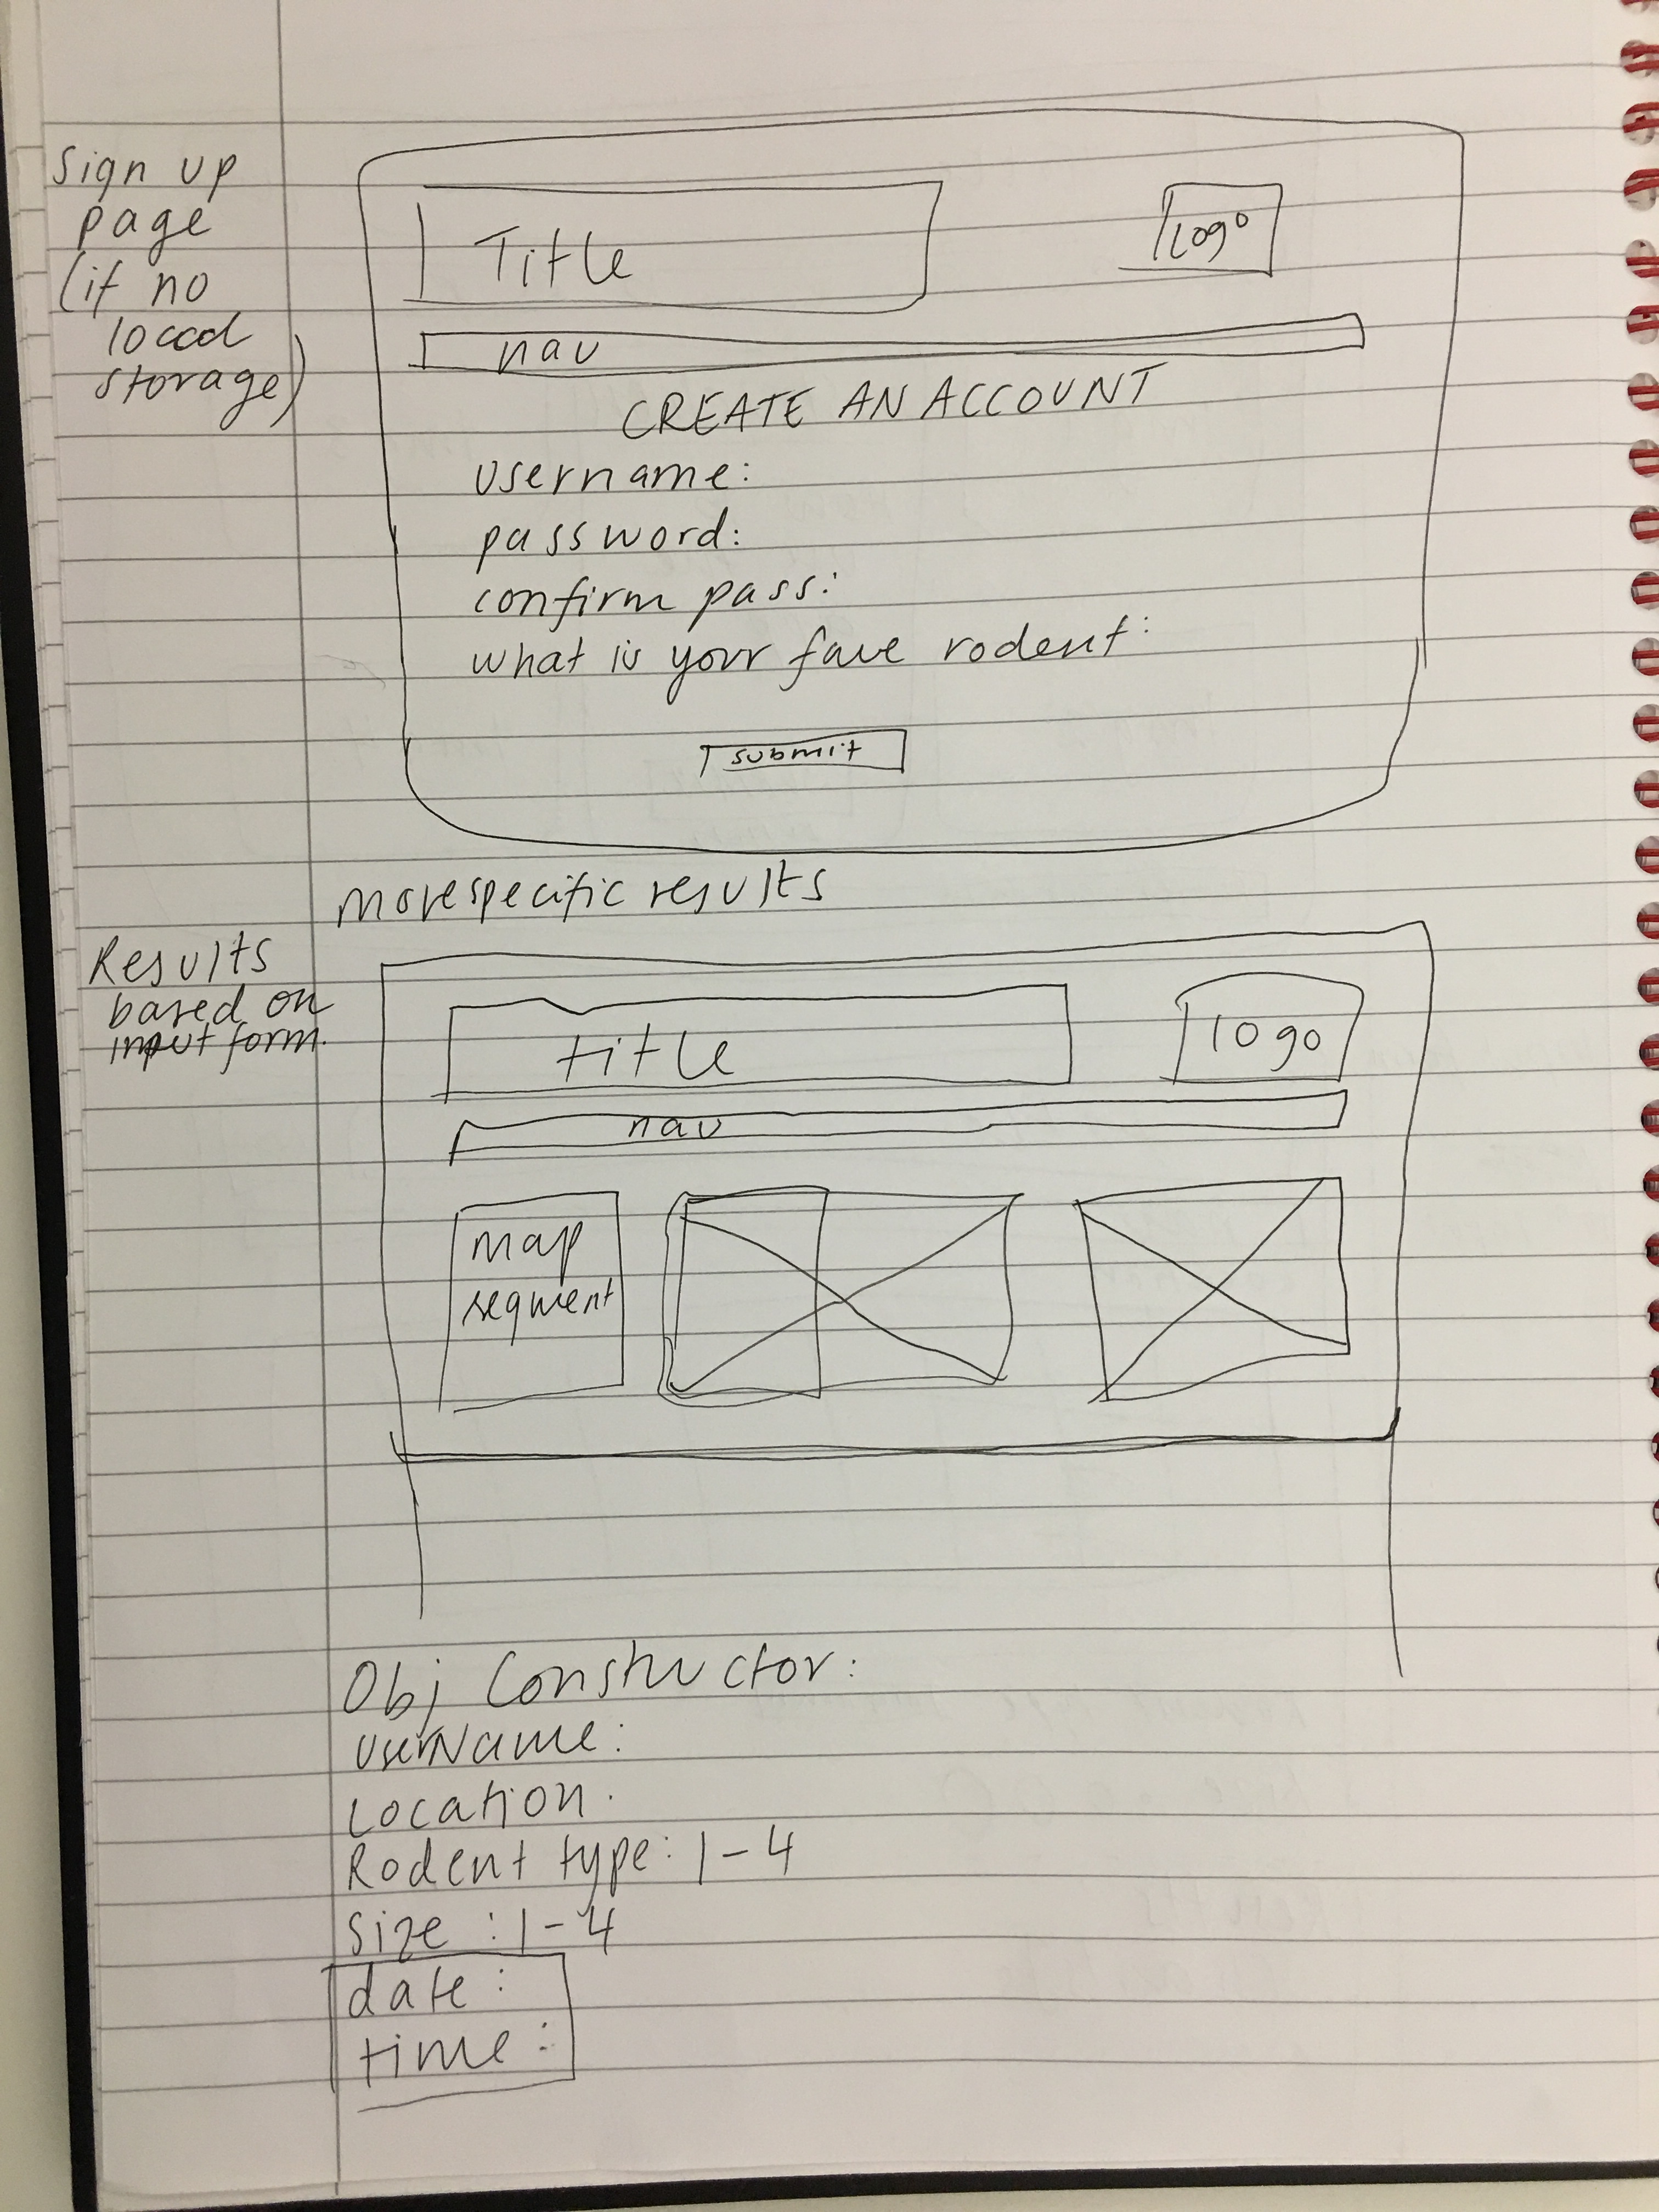 Sign up
page
(if no
local
storage)
Title
logo
nav
CREATE AN ACCOUNT
username:
password:
confirm pass:
what is your fave rodent:
submit
more specific results
Results
based on
input form.
title
logo
nav
map
segment
Obj Constructor:
UserName:
Location.
Rodent type: 1-4
Size : 1-4
date :
time :